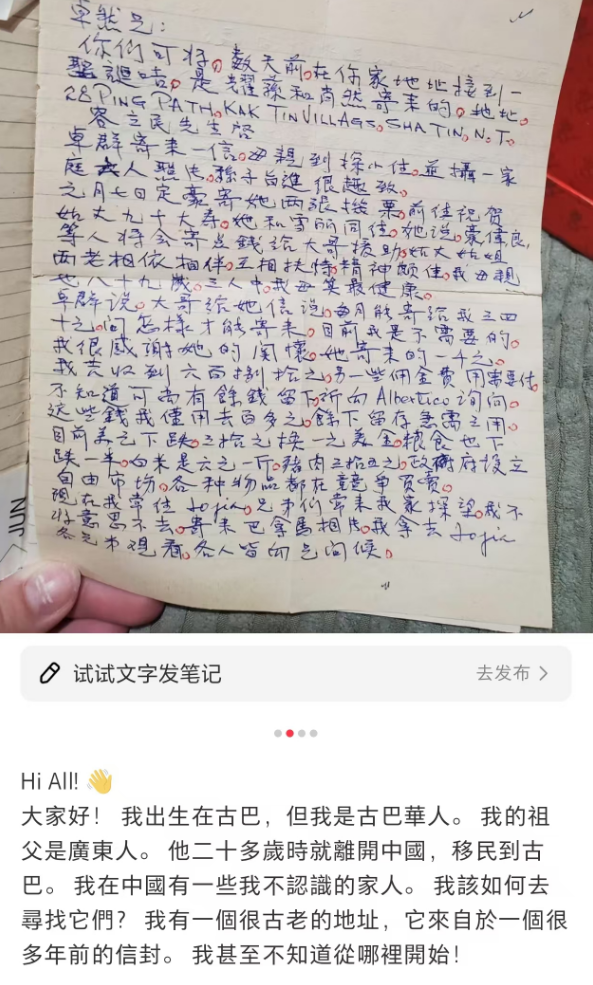 卓然兄:
你們可好,數天前,在你家地址接到一
聖誕咭,是耀蓀和肖然寄來的,地址。
28 PING PATH, KAK TIN VILLAGS, SHA TIN, N.T.
容立民先生啓
卓群寄來一信,母親到探小住,並攝一家
庭 人 孫子自進很趣致。
之月七日定豪寄她兩張機票,前往祝賀
姑丈九十大壽,她和雪丽同住,她说,豪偉良,
等人将会寄些錢给大哥援助,姑丈姑姐
两老相依相伴,互相扶持,精神頗佳,我母親
也八十九歲,三人中,我母算最健康。
卓群说,大哥给她信说,每月能寄给我三四
十元,问怎樣才能寄来,目前我是不需要的。
我很感謝她的関懷,她寄来的一千元,
我共收到六百捌拾元,另一些佣金費用需要付,
不知道可尚有餘錢留下,祈向Albertico询问。
这些錢我僅用去百多元,餘下留存急需之用。
目前美元下跌,三拾元换一元美金,粮食也下
跌一半,白米是六元一斤,豬肉三拾五元,政府設立
自由市场,各种物品都在競争買賣。
現在我常住 兄弟们常来我家探望,我不
好意思不去,寄来巴拿馬相片,我拿去
各兄弟观看,各人皆向兄问候。
JUN
试试文字发笔记
去发布
Hi All! 👋
大家好！ 我出生在古巴，但我是古巴華人。 我的祖
父是廣東人。 他二十多歲時就離開中國，移民到古
巴。 我在中國有一些我不認識的家人。 我該如何去
尋找它們？ 我有一個很古老的地址，它來自於一個很
多年前的信封。 我甚至不知道從哪裡開始！